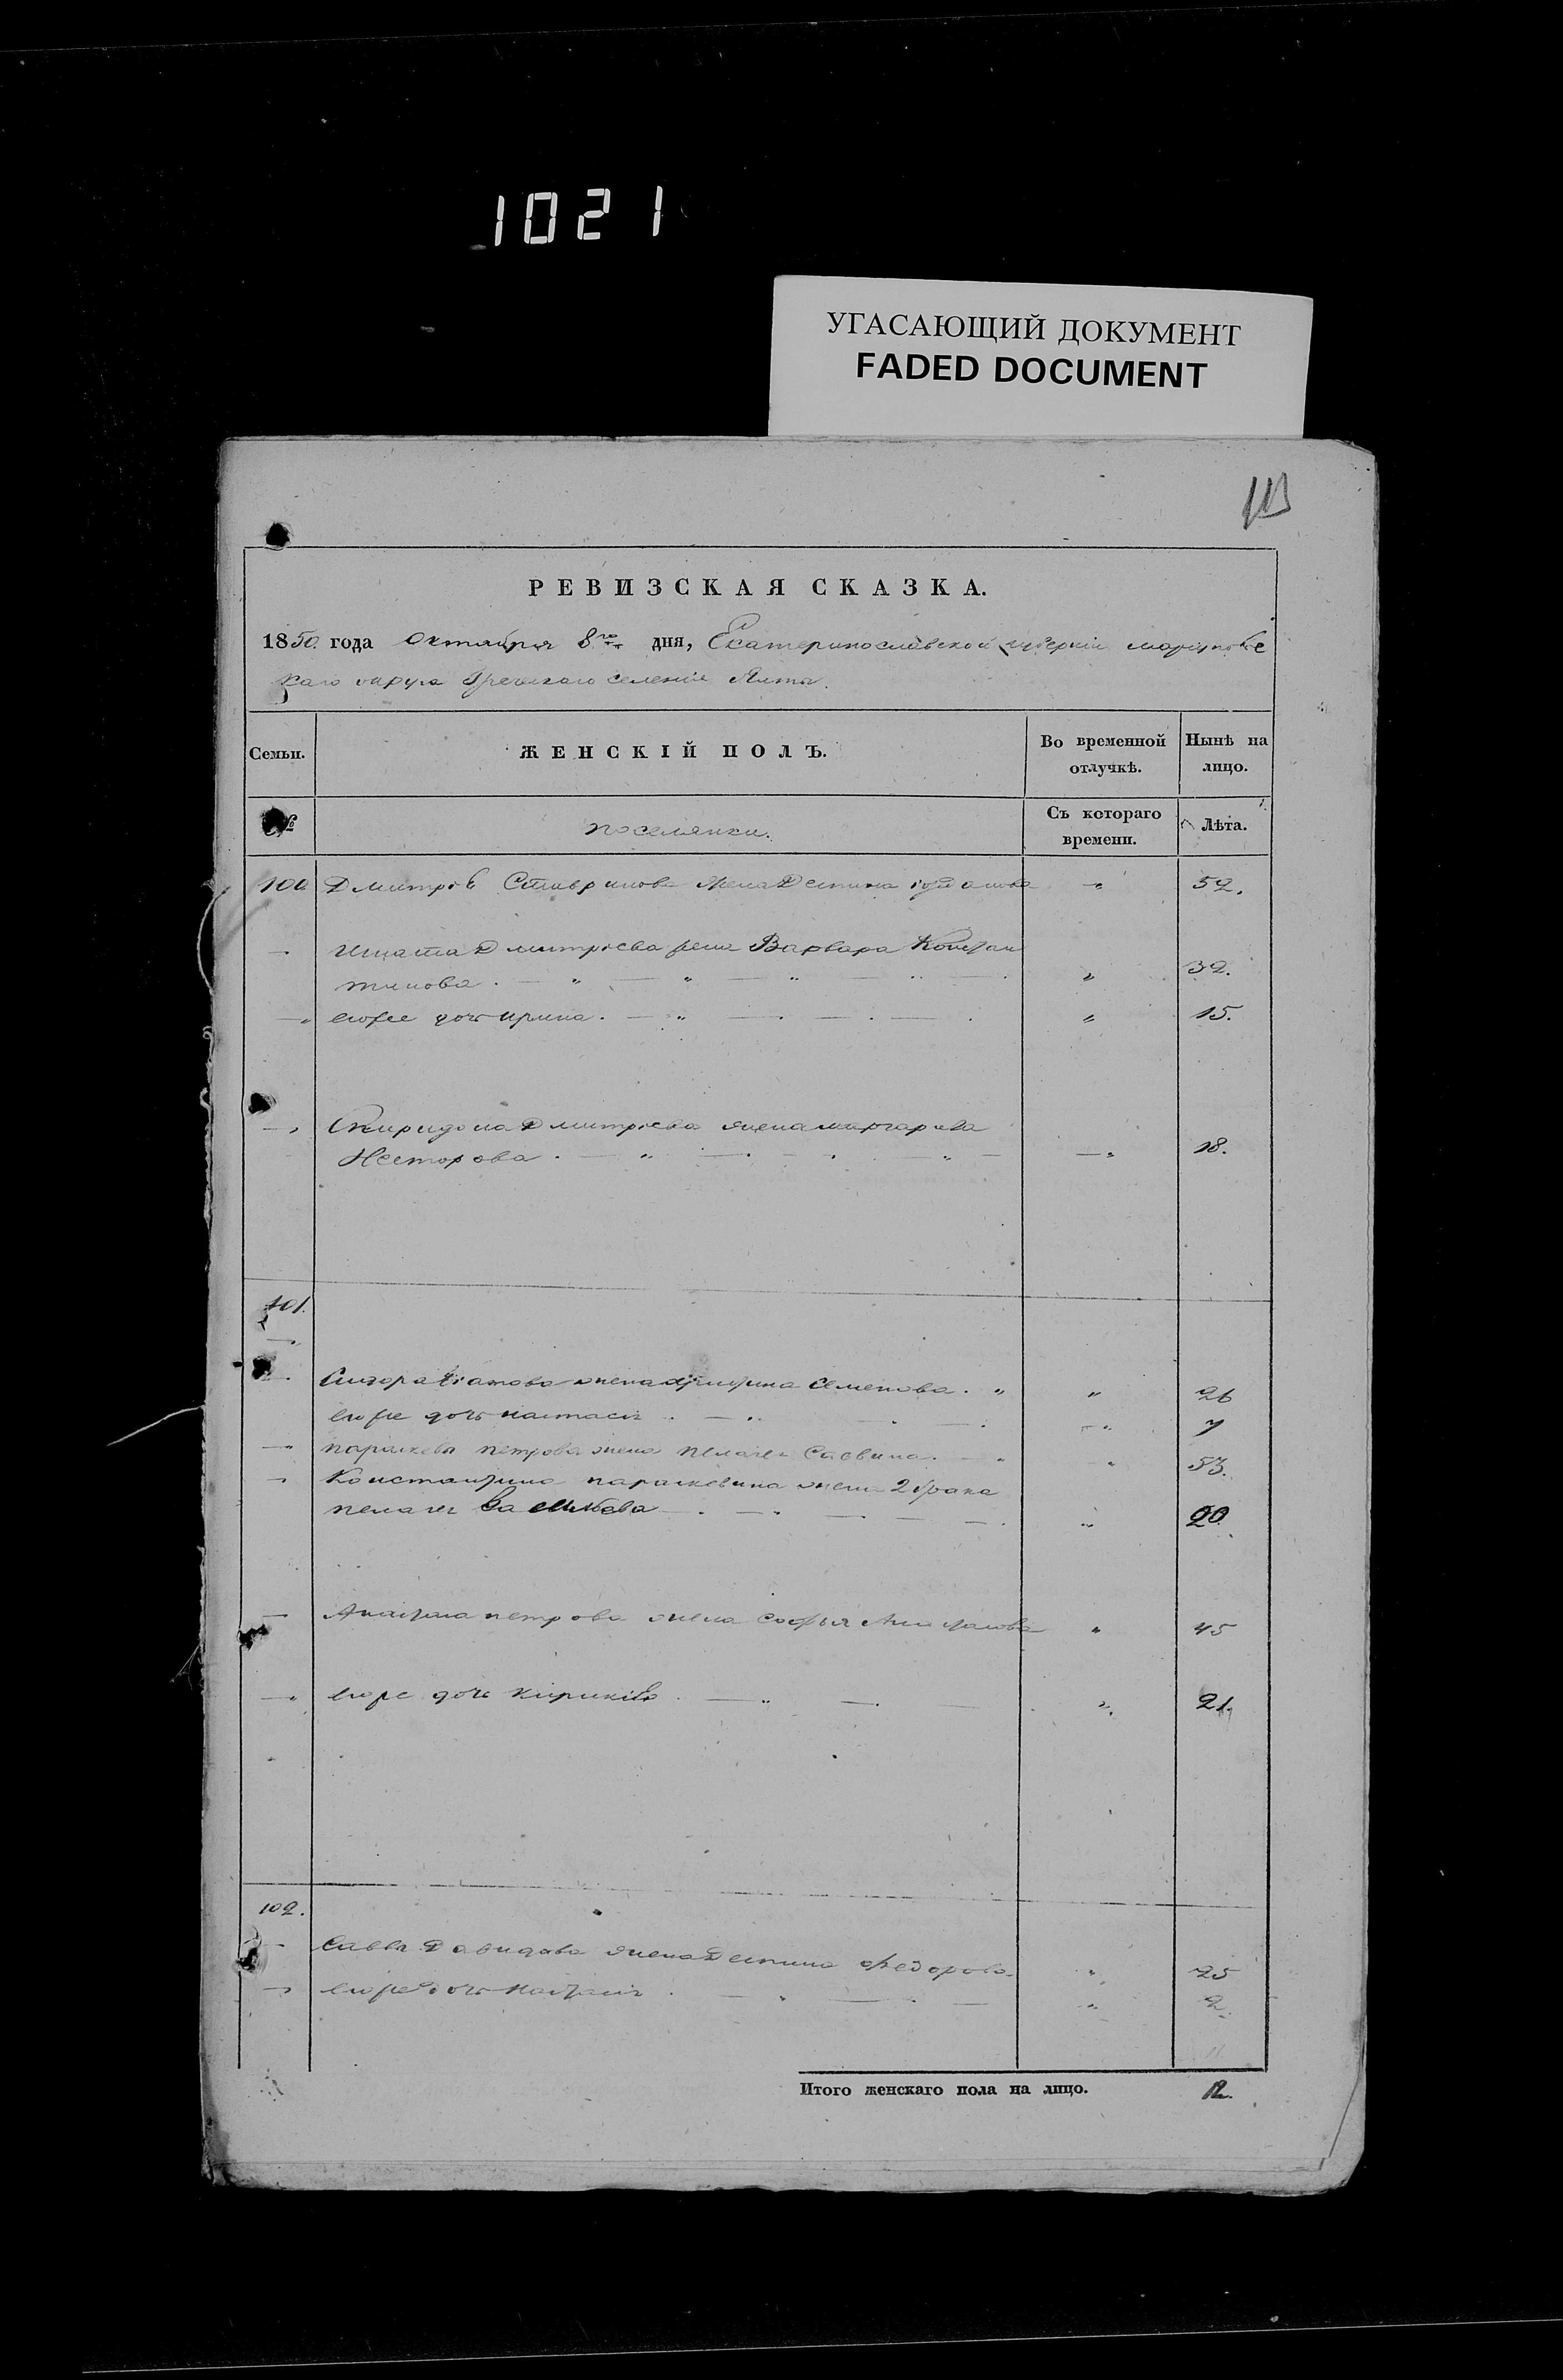 1021
УГАСАЮЩИЙ ДОКУМЕНТ
FADED DOCUMENT
РЕВИЗСКАЯ СКАЗКА.
1850 года Октября 8го дня, Екатеринославской губернии мариупольс
каго округа Греческаго селенія Ялты.
Семьи.
ЖЕНСКІЙ ПОЛЪ.
Во временной отлучкѣ.
Нынѣ на лицо.
№
поселянки.
Съ котораго времени.
Лѣта.
100 Дмитрія Ставринова жена Деспина 52.
Игната Дмитрієва жена Варвара Констан
тинова. 32.
его же дочь Ирина. 15.
Спиридона Дмитрієва жена маргарита
Несторова. 18.
101.
жена Семенова. 26
его же дочь настасія 7
параскева петрова жена пелагея Саввина. 53.
Константина параскевина жена 2 брака
пелагея Василева 20.
петрова жена Софья 45
его же дочь 21.
102.
Саввы Давидова жена Деспина Федорова 25
его же дочь Настасія 2.
Итого женскаго пола на лицо. 12.